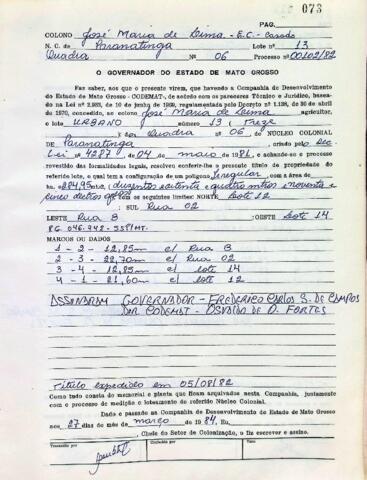 PAG. 073
COLONO José Maria de Lima - E.C. - Casado
N. C. de Paranatinga Lote nº 13
Quadra Nº 06 Processo nº 00102/82
O GOVERNADOR DO ESTADO DE MATO GROSSO
Faz saber, aos que o presente virem, que havendo a Companhia de Desenvolvimento
do Estado de Mato Grosso - CODEMAT-, de acordo com os pareceres Técnico e Jurídico, basea-
do na Lei nº 2.933, de 10 de junho de 1969, regulamentada pelo Decreto nº 1.138, de 30 de abril
de 1970, concedido, ao colono José Maria de Lima agricultor,
o lote URBANO número 13 (Treze
Quadra nº 06, do NÚCLEO COLONIAL
DE Paranatinga criado pelo Dec
Lei nº 4287 de 04 de maio de 1981, e achando-se o processo
revestido das formalidades legais, resolveu conferir-lhe o presente título de propriedade do
referido lote, o qual tem a configuração de um polígono irregular com a área de
284,95m2 (duzentos e oitenta e quatro mtros e noventa e
cinco dectros
com os seguintes limites: NORTE Lote 12
: SUL Rua 02
LESTE Rua B :OESTE Lote 14
MARCOS OU DADOS
1 - 2 - 12,85m c/ Rua B
2 - 3 - 22,70m c/ Rua 02
3 - 4 - 12,85m c/ lote 14
4 - 1 - 21,60m c/ lote 12
ASSINARAM GOVERNADOR - FREDERICO CARLOS S. DE CAMPOS
CODEMAT - OSVALDO DE O. FORTES
Título expedido em 05/08/82
Como tudo consta do memorial e planta que ficam arquivados nesta Companhia, juntamente
com o processo de medição e loteamento do referido Núcleo Colonial.
Dado e passado na Companhia de Desenvolvimento do Estado de Mato Grosso
aos 27 dias do mês de março de 1984, Eu,
, Chefe do Setor de Colonização, o fiz escrever e assino.
Transcrito por Conferido por Visto